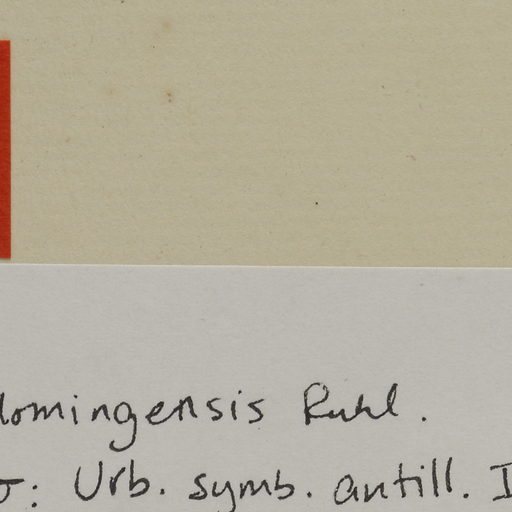 domingensis Ruhl.
: Urb. symb. antill. I